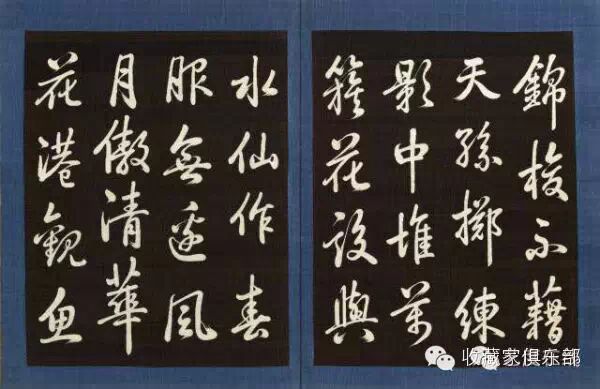 錦梭不藉
天孫擲練
影中堆萬
簇花設與
水仙作春
服無邊風
月傲清華
花港觀魚
收藏家俱乐部